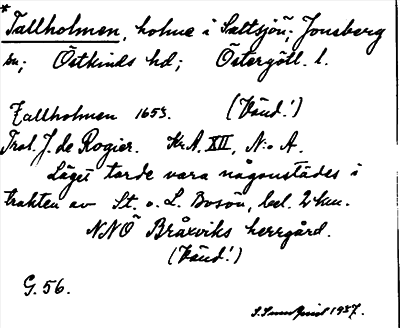 * Tallholmen, holme i Sättsjön; Jonsberg
sn; Östkinds hd; Östergötl. l.
Tallholmen 1653. (Vänd!)
Trol. J. de Rogier. Kr.A. XII, N:o A.
Läget torde vara någonstädes i
trakten av St. o. L. Bosön, bel. 2 km.
NNÖ Bråxviks herrgård.
(Vänd!)
G. 56.
1937.